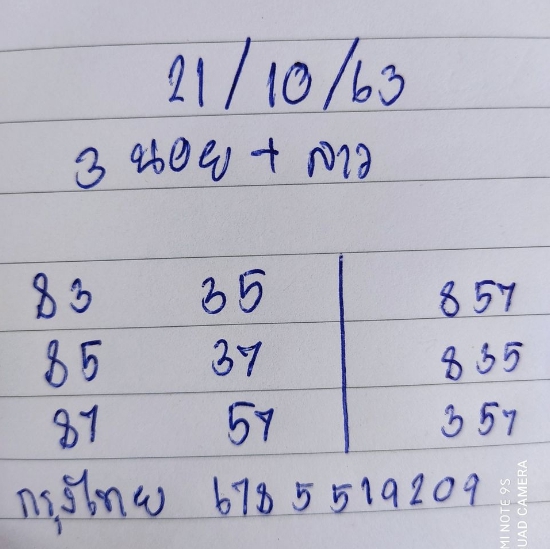 21/10/63
3 นอย + ลาว
83 35 857
85 37 835
87 57 357
กรุงไทย 6785519209
MI NOTE 9S
UAD CAMERA